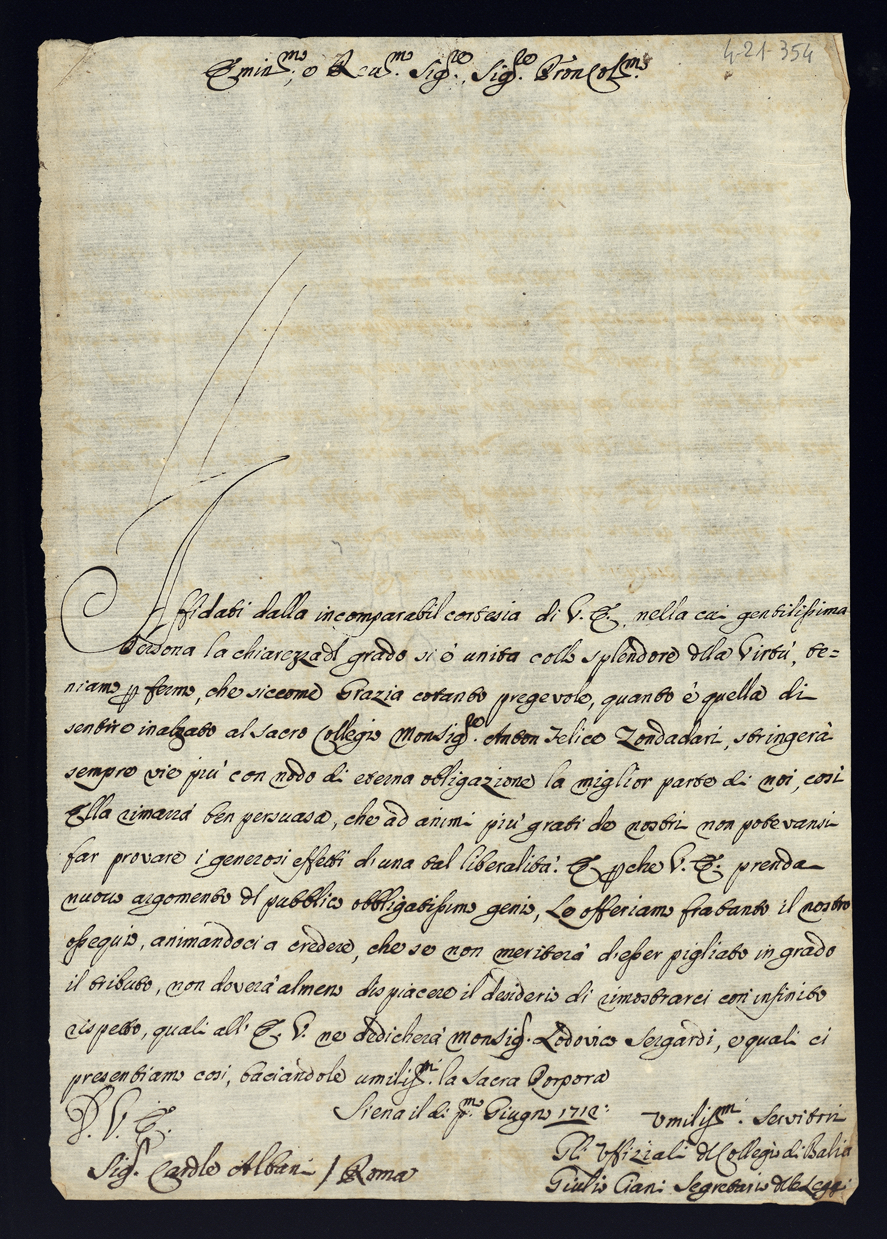 4-21-354
Emin.mo e Reu.mo Sig.re Sig.re Pron Col.mo
Affidati dalla incomparabil cortesia di V. E. nella cui gentilissima
Persona la chiarezza dl grado si è unita collo splendore dlla Virtù, te=
niamo p fermo, che siccome Grazia cotanto pregevole, quanto è quella di
sentire inalzato al sacro Collegio Monsig.re Anton Felice Zondadari, stringerà
sempre vie più con nodo di eterna obligazione la miglior parte di noi, così
Ella rimarrà ben persuasa, che ad animi più grati de nostri non potevansi
far provare i generosi effetti d'una tal liberalità. E pche V. E. prenda
nuovo argomento dl pubblico obbligatissimo genio, Le offeriamo frattanto il nostro
ossequio, animandoci a credere, che se non meriterà d'esser pigliato in grado
il tributo, non doverà almeno dispiacere il desiderio di rimostrarci con infinito
rispetto, quali all' E. V. ne dedicherà Monsig.r Lodovico Sergardi, e quali ci
presentiamo così, baciandole umiliss.mi la Sacra Porpora
D. V. E.
Siena il dì p.mo Giugno 1712:
Vmiliss.mi Servitori
Gli Vffiziali dl Collegio di Balia
Sig.r Cardle Albani / Roma
Giulio Ciani Segretario dlle Leggi